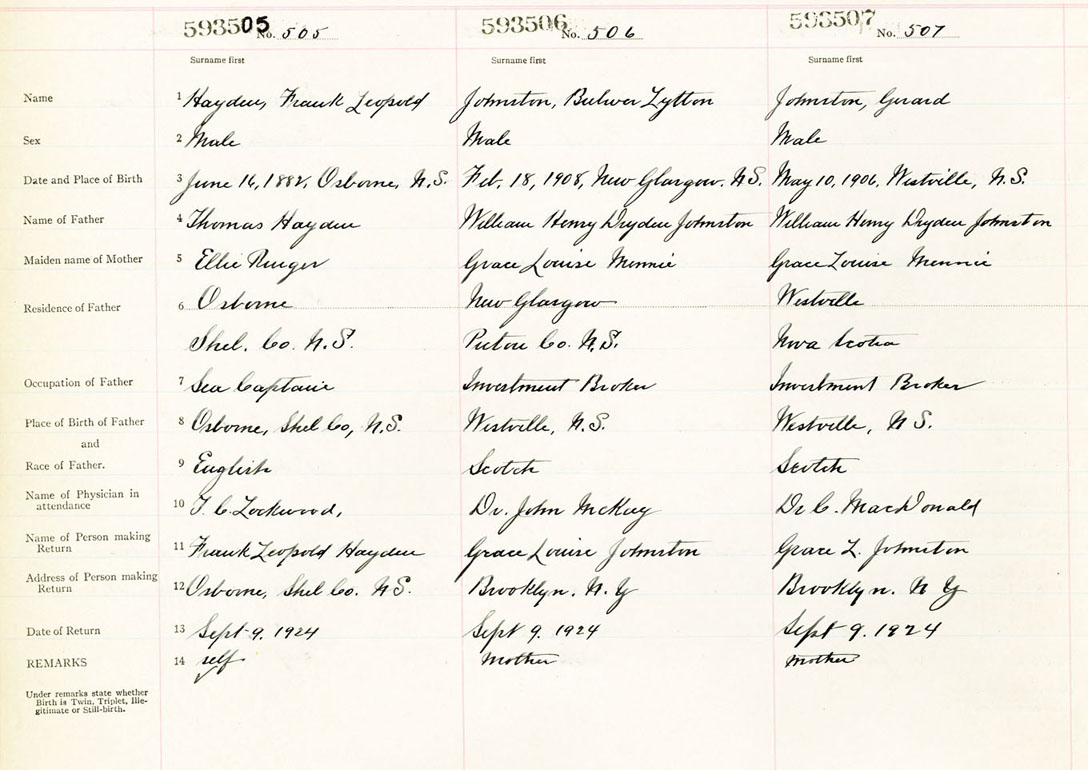 59350 05 No. 505 593506 No. 506 593507 No. 507
Surname first Surname first Surname first
Name 1 Hayden, Frank Leopold Johnston, Bulwer Lytton Johnston, Gerard
Sex 2 Male Male Male
Date and Place of Birth 3 June 16, 1882, Osborne, N.S. Feb. 18, 1908, New Glasgow. N.S. May 10, 1906, Westville, N.S.
Name of Father 4 Thomas Hayden William Henry Dryden Johnston William Henry Dryden Johnston
Maiden name of Mother 5 Ellie Ringer Grace Louise Mennie Grace Louise Mennie
Residence of Father 6 Osborne New Glasgow Westville
Shel. Co. N.S. Pictou Co. N.S. Nova Scotia
Occupation of Father 7 Sea Captain Investment Broker Investment Broker
Place of Birth of Father 8 Osborne, Shel Co, N.S. Westville, N.S. Westville, N S.
and
Race of Father. 9 English Scotch Scotch
Name of Physician in
attendance 10 T. C. Lockwood, Dr. John McKay Dr C. MacDonald
Name of Person making
Return 11 Frank Leopold Hayden Grace Louise Johnston Grace L. Johnston
Address of Person making
Return 12 Osborne, Shel Co. N S. Brooklyn. N. Y Brooklyn. N Y
Date of Return 13 Sept 9. 1924 Sept 9. 1924 Sept 9. 1924
REMARKS 14 self mother mother
Under remarks state whether
Birth is Twin, Triplet, Ille-
gitimate or Still-birth.